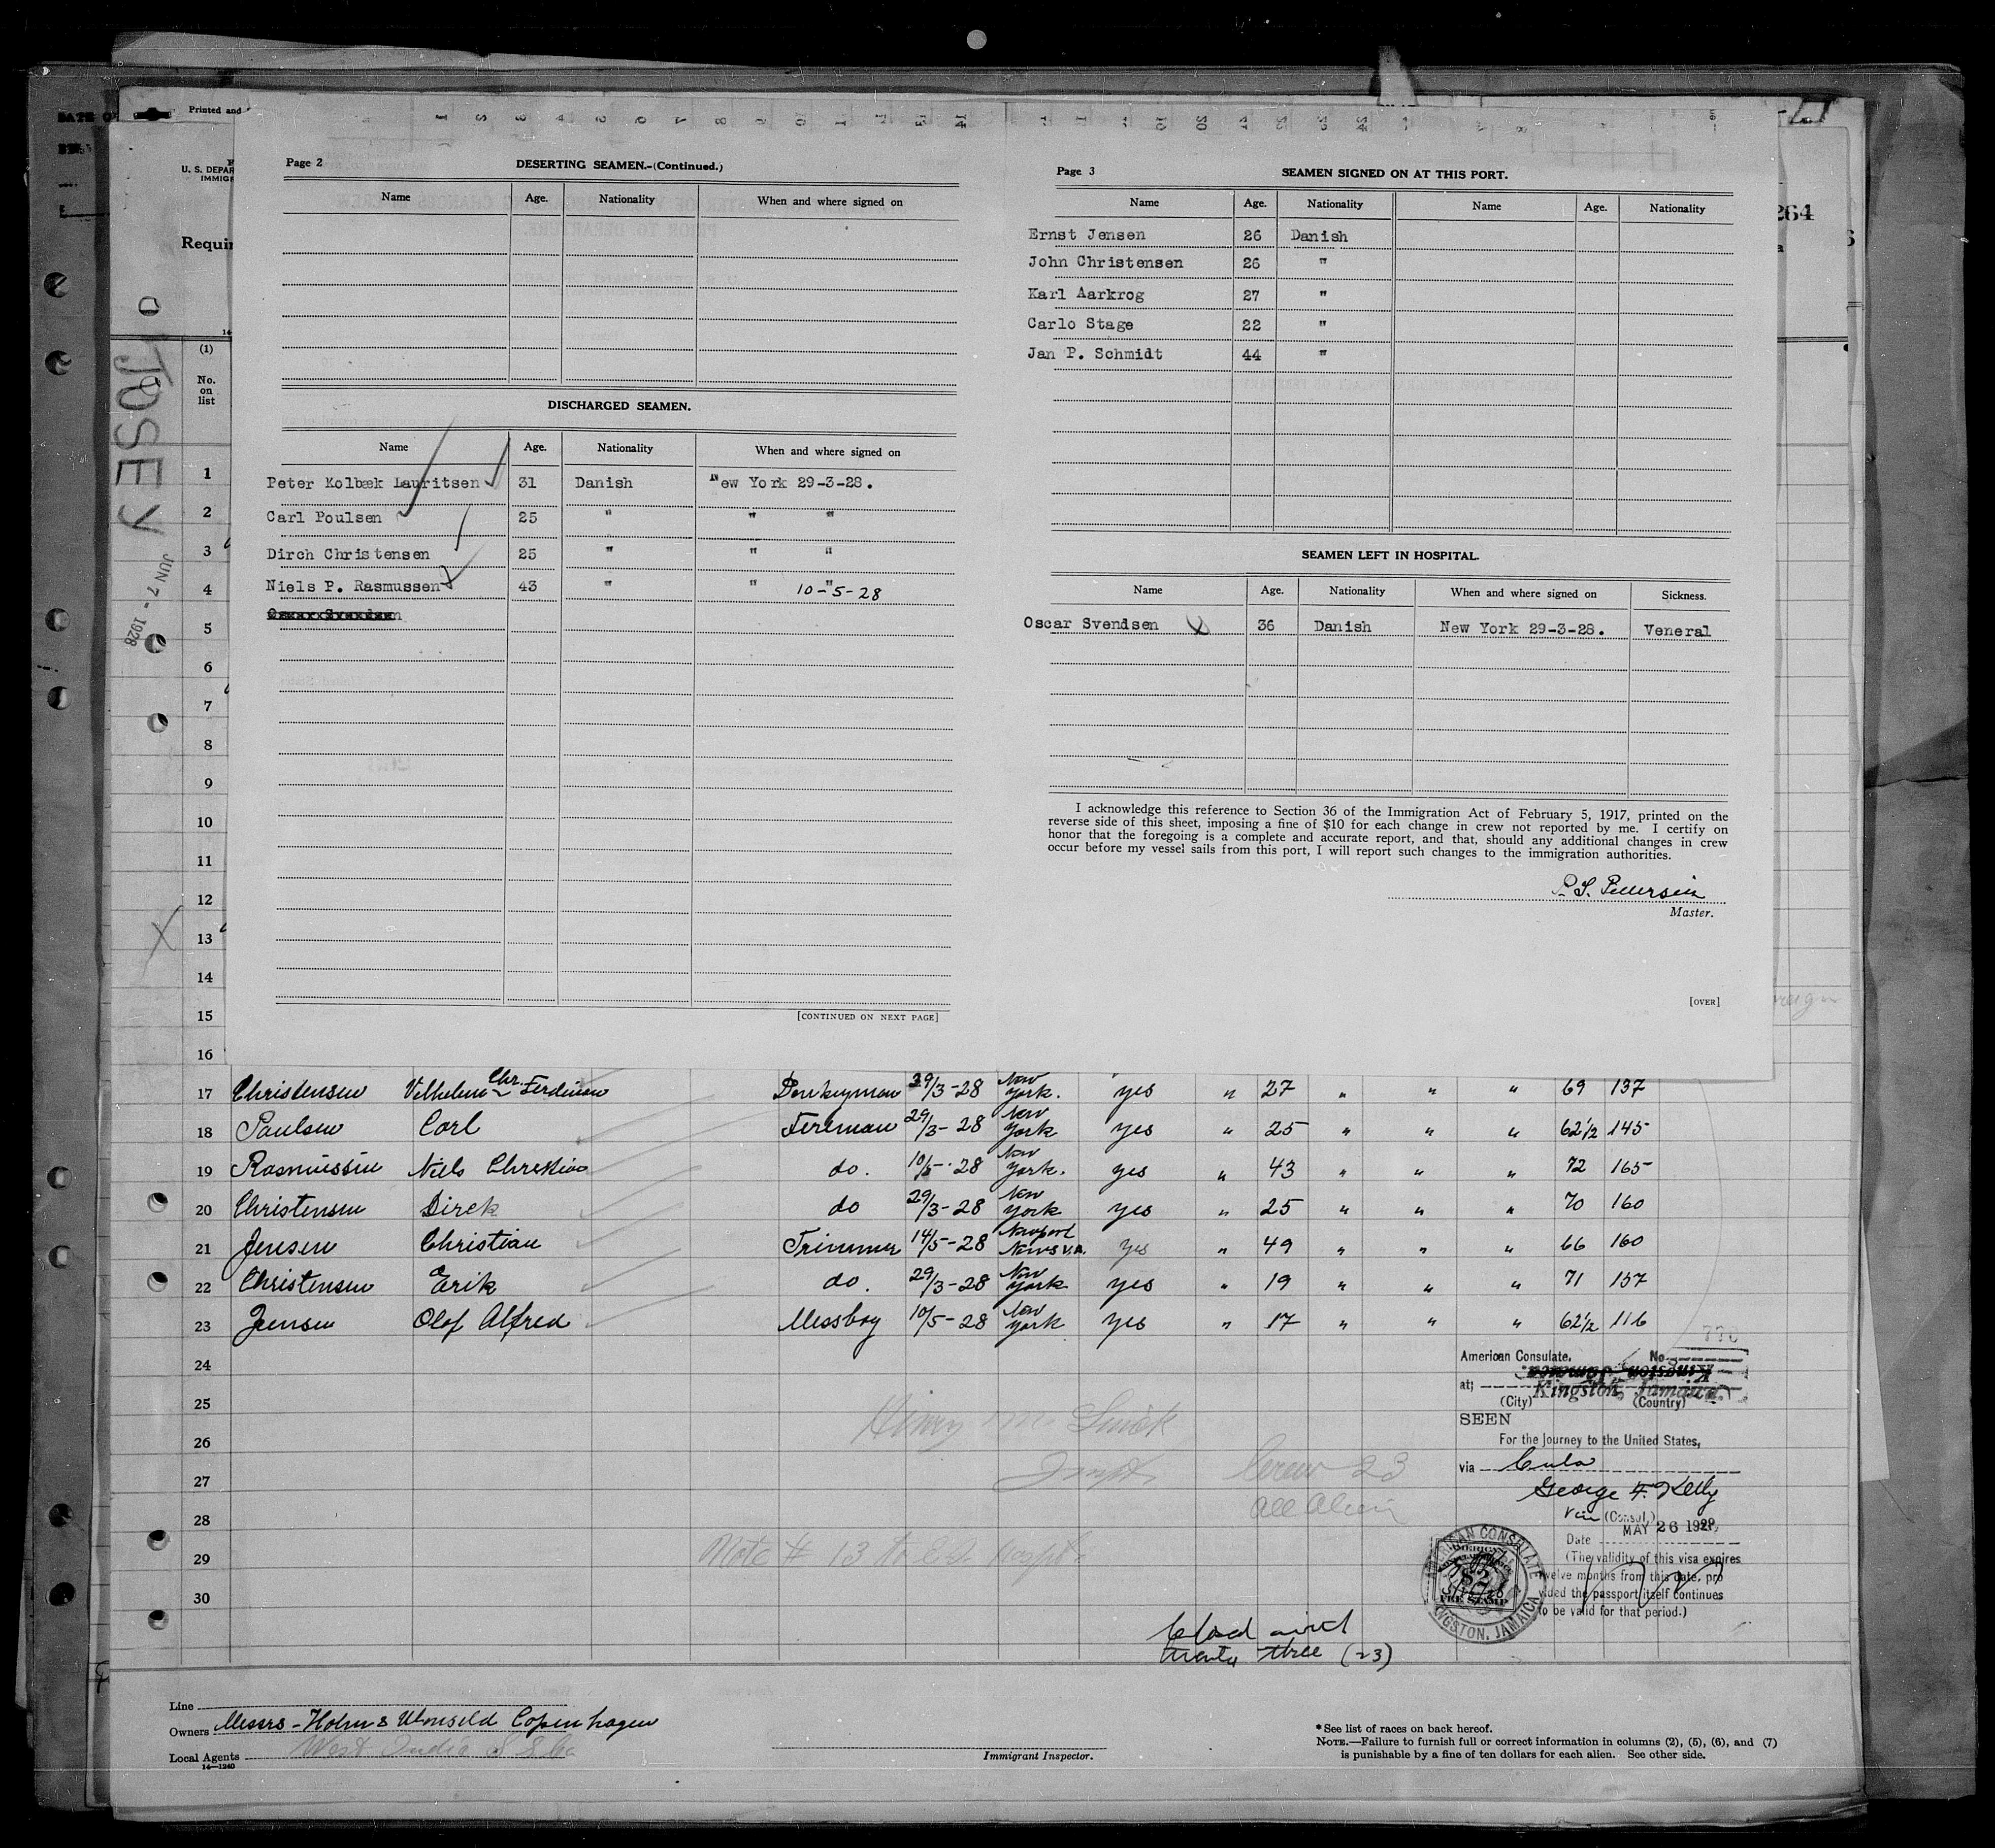 Printed and
U. S. DEPAR
IMMIG
Requir
264
Page 2 DESERTING SEAMEN.-(Continued.)
Name Age. Nationality When and where signed on
DISCHARGED SEAMEN.
Name Age. Nationality When and where signed on
Peter Kolbæk Lauritsen 31 Danish New York 29-3-28.
Carl Poulsen 25 " " "
Dirch Christensen 25 " " "
Niels P. Rasmussen 43 " " "
10-5-28
Oscar Svendsen
[CONTINUED ON NEXT PAGE]
Page 3 SEAMEN SIGNED ON AT THIS PORT.
Name Age. Nationality Name Age. Nationality
Ernst Jensen 26 Danish
John Christensen 26 "
Karl Aarkrog 27 "
Carlo Stage 22 "
Jan P. Schmidt 44 "
SEAMEN LEFT IN HOSPITAL.
Name Age. Nationality When and where signed on Sickness.
Oscar Svendsen 36 Danish New York 29-3-28. Veneral
I acknowledge this reference to Section 36 of the Immigration Act of February 5, 1917, printed on the
reverse side of this sheet, imposing a fine of $10 for each change in crew not reported by me. I certify on
honor that the foregoing is a complete and accurate report, and that, should any additional changes in crew
occur before my vessel sails from this port, I will report such changes to the immigration authorities.
P. S. Pedersen
Master.
[OVER]
JOSEY
JUN 7 - 1928
(1)
No.
on
list
1
2
3
4
5
6
7
8
9
10
11
12
13
14
15
16
17 Christensen Vilhelm Chr. Ferdinan Donkeyman 29/3-28 New York. yes " 27 " " " 69 137
18 Paulsen Carl Fireman 29/3-28 New York yes " 25 " " " 62½ 145
19 Rasmussen Niels Christian do. 10/5-28 New York. yes " 43 " " " 72 165
20 Christensen Direk do 29/3-28 New York yes " 25 " " " 70 160
21 Jensen Christian Trimmer 14/5-28 Newport News Va. yes " 49 " " " 66 160
22 Christensen Erik do. 29/3-28 New York yes " 19 " " " 71 157
23 Jensen Olof Alfred Messboy 10/5-28 New York yes " 17 " " " 62½ 116
24
25
26
27
28
29
30
Crew 23
All Alien
Note # 13
Closed with
twenty three (23)
770
American Consulate, No.
at; Kingston, Jamaica.
(City) (Country)
SEEN
For the journey to the United States,
via Cuba
George F. Kelly
Vice (Consul.)
Date MAY 26 192
(The validity of this visa expires
twelve months from this date, pro
vided the passport itself continues
to be valid for that period.)
AMERICAN CONSULATE
KINGSTON, JAMAICA
$2
FEE STAMP
Line
Owners Messrs - Holm & Wonsild Copenhagen
Local Agents West India S S Co
14—1240
Immigrant Inspector.
* See list of races on back hereof.
NOTE.—Failure to furnish full or correct information in columns (2), (5), (6), and (7)
is punishable by a fine of ten dollars for each alien. See other side.